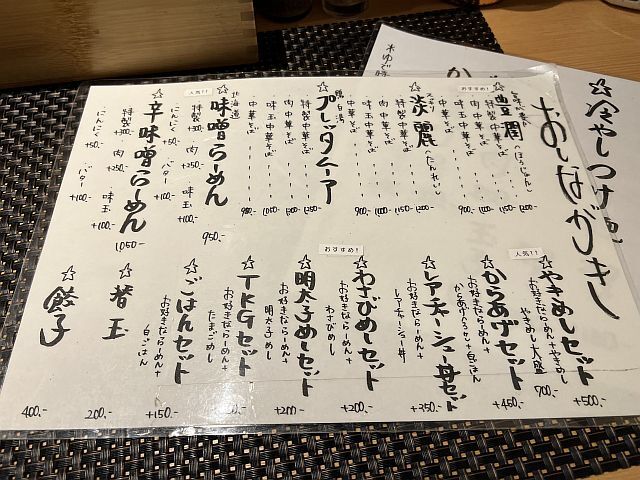 おしながき
おすすめ!
☆豊潤(ほうじゅん)
特製中華そば --- 1200.-
肉中華そば --- 1150.-
味玉中華そば --- 1000.-
中華そば --- 900.-
☆淡麗(たんれい)
特製中華そば --- 1200.-
肉中華そば --- 1150.-
味玉中華そば --- 1000.-
中華そば --- 900.-
鶏白湯
肉中華そば
味玉中華そば
中華そば
人気!!
北海道
☆味噌らーめん 950.-
特製 +300.- 肉 +250.- 味玉 +100.-
にんにく +50.- バター +100.-
☆辛味噌らーめん 1050.-
特製 +300.- 肉 +250.- 味玉 +100.-
にんにく +50.- バター +100.-
人気!!
☆やきめしセット +500.-
お好きならーめん+やきめし
やきめし大盛 700.-
☆からあげセット +450.-
お好きならーめん+
からあげ+白ごはん
☆レアチャーシュー丼セット +350.-
お好きならーめん+
レアチャーシュー丼
おすすめ!
☆わさびめしセット +200.-
お好きならーめん+
わさびめし
☆明太子めしセット +200.-
お好きならーめん+
明太子めし
☆TKGセット
お好きならーめん+
たまごめし
☆ごはんセット +150.-
お好きならーめん+
白ごはん
☆替玉 200.-
☆餃子 400.-
☆冷やしつけ麺